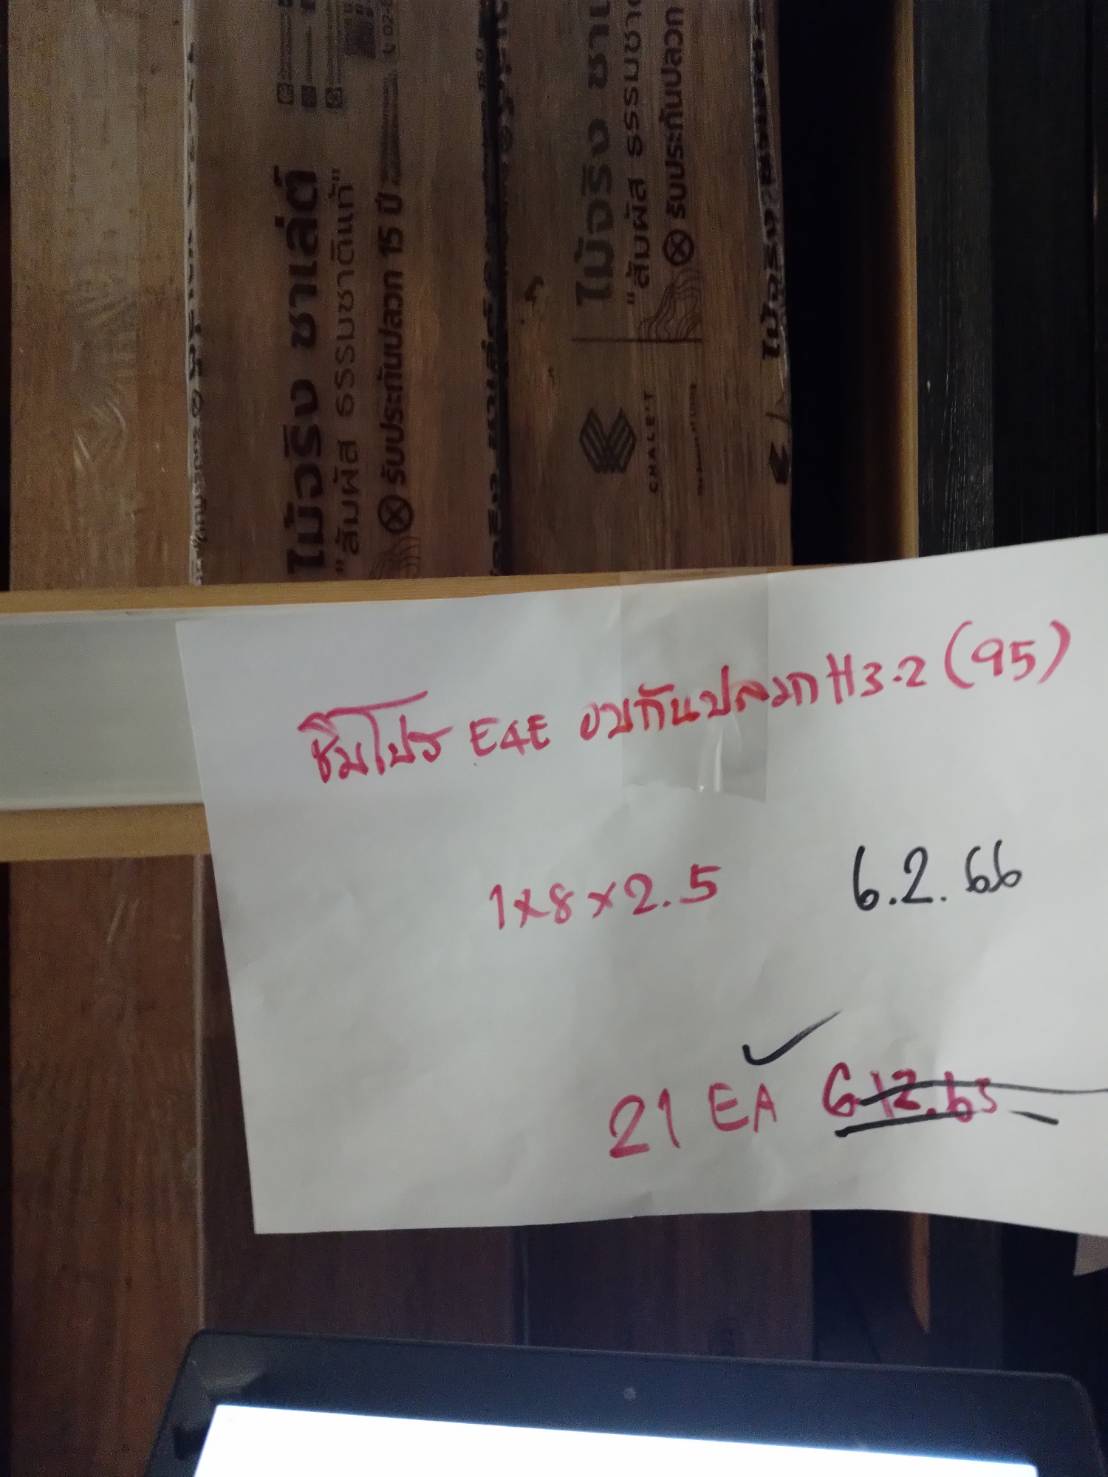 ไม้จริง ชาเล่ต์
"สัมผัส ธรรมชาติแท้"
รับประกันปลวก 15 ปี
ไม้จริง ชาเ
"สัมผัส ธรรมชา
รับประกันปลวก
CHALE'T
ชิมโปร E4E อบกันปลวก H3.2 (95)
1x8x2.5
6.2.66
21 EA 6.12.65